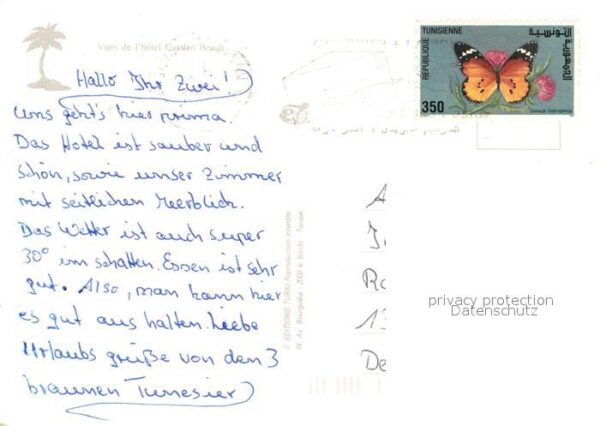 Vues de l'hôtel Garden Beach
Hallo Ihr Zwei!
uns geht's hier prima.
Das Hotel ist sauber und
schön, sowie unser Zimmer
mit seitlichen Meerblick.
Das Wetter ist auch super
30° im schatten. Essen ist sehr
gut. Also, man kann hier
es gut aus halten. Liebe
Urlaubs grüße von den 3
braunen Tunesier
© EDITIONS TURKI Reproduction interdite
74, Av. Bourguiba 2000 le Bardo - Tunisie
REPUBLIQUE TUNISIENNE
الجمهورية التونسية
350
A
J
Ro
13
De
privacy protection
Datenschutz